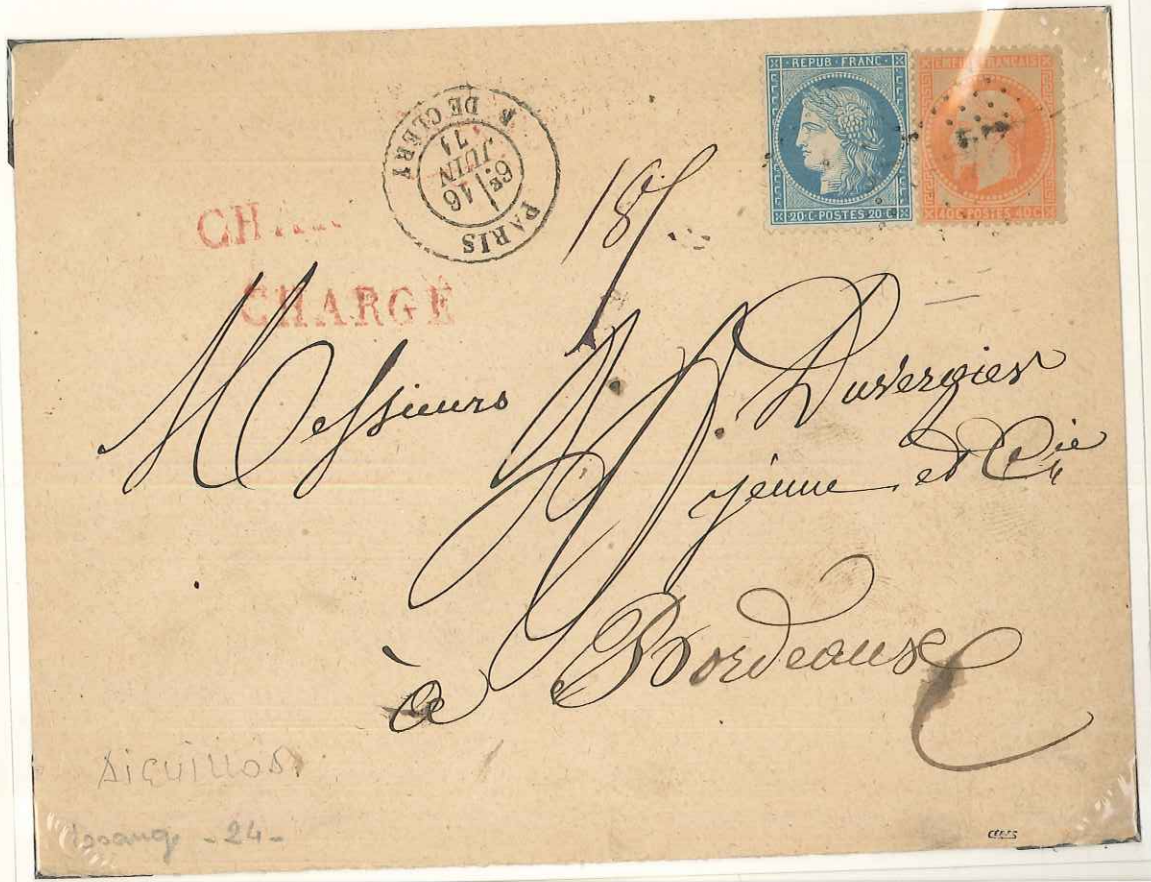 REPUB · FRANC ·
20 C. POSTES 20 C.
EMPIRE FRANÇAIS
40 C POSTES 40 C
PARIS
R. DE CLERY
6E 16
JUIN
71
CHAR
CHARGÉ
Messieurs Duvergier
jeune et Cie
à Bordeaux
AIGUILLOS
- 24 -
CÉRÈS